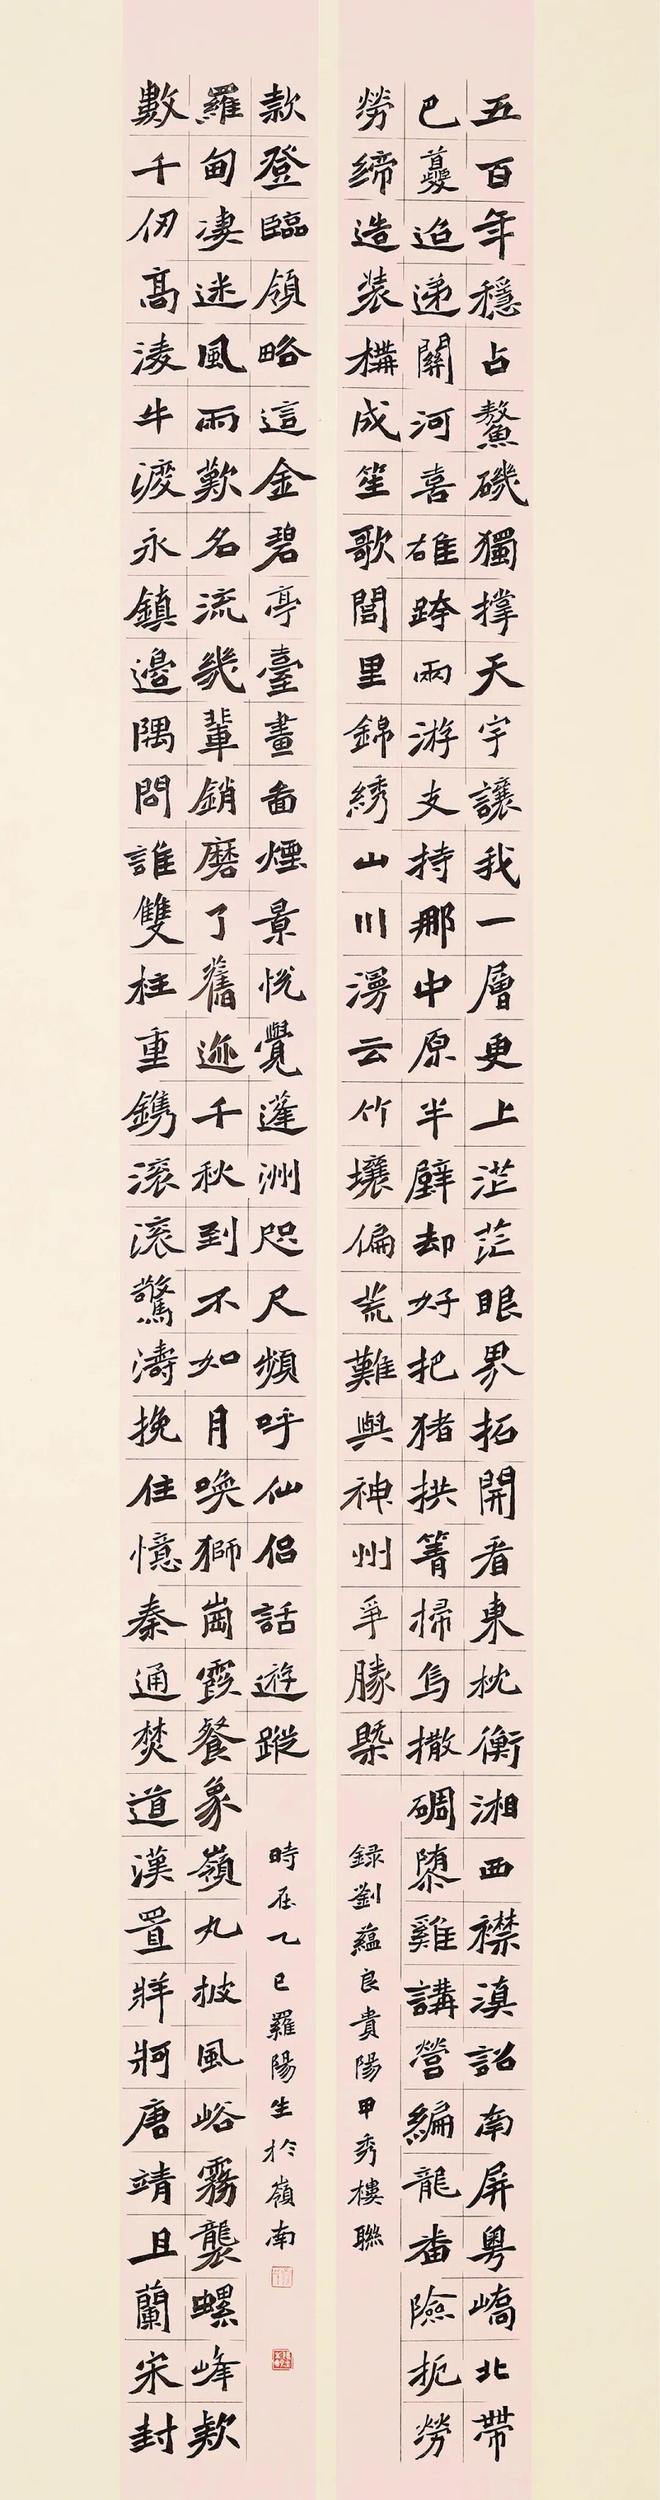 五百年穩占鰲磯獨撐天宇讓我一層更上茫茫眼界拓開看東枕衡湘西襟滇詔南屏粵嶠北帶
巴夔迢遞關河喜雄跨兩游支持那中原半壁却好把猪拱箐掃烏撒碉隳雞講營編龍番險扼勞
勞締造裝構成笙歌閭里錦綉山川漫云竹壤偏荒難與神州爭勝槩
録劉蘊良貴陽甲秀樓聯
數千仞高淩牛渡永鎮邊隅問誰雙柱重鐫滚滚驚濤挽住憶秦通僰道漢置牂牁唐靖且蘭宋封
羅甸凄迷風雨歎名流幾輩銷磨了舊迹千秋到不如月喚獅崗霞餐象嶺丸披風峪霧襲螺峰款
款登臨領略這金碧亭臺畫啚煙景恍覺蓬洲咫尺頻呼仙侣話遊蹤
時在乙巳羅陽生於嶺南